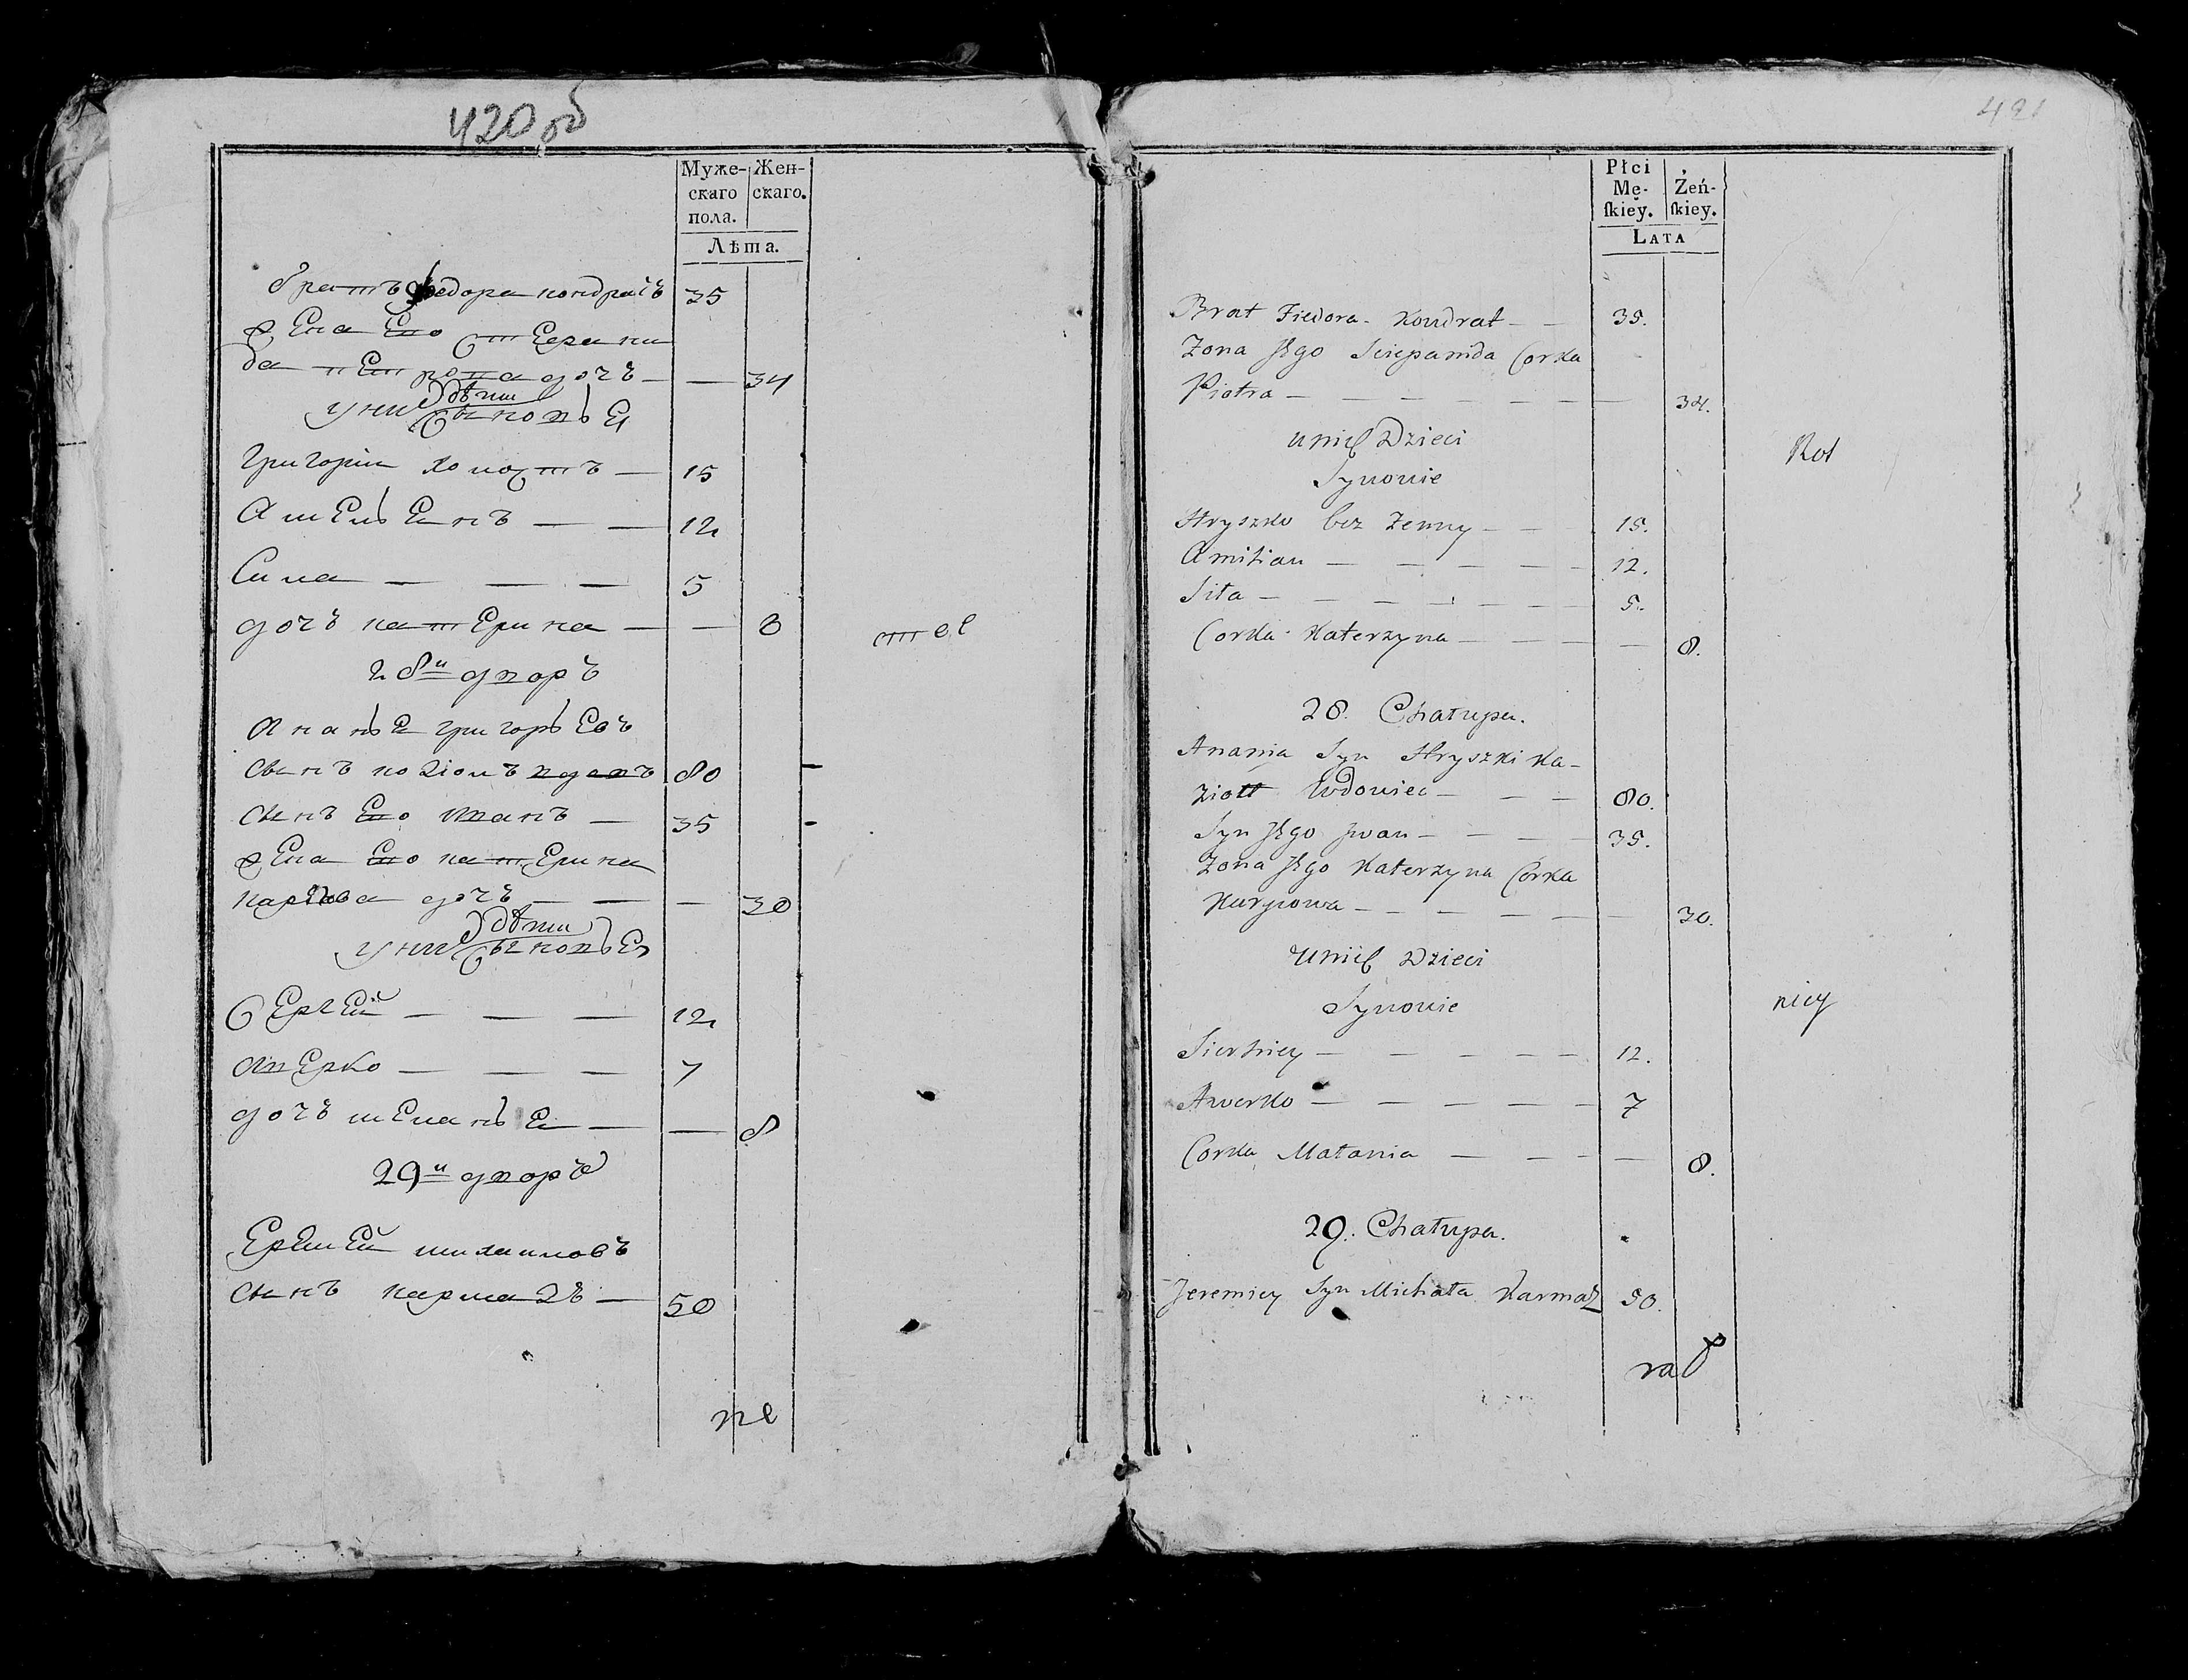 420 об
Муже-
скаго
пола.
Жен-
скаго.
Лѣта.
братъ Федора кондратъ 35
жена Его Степани
да петрова дочъ — — 34
у них дѣти
Сыновья
григорій холостъ — 15
Амельянъ — — 12
Сила — — — 5
дочъ катерина — — 8
тел
28й дворъ
Ананья григорьевъ
сынъ козіолъ вдовъ 80
сынъ Его иванъ — 35
жена Его катерина
дочъ — — — 30
у них дѣти
Сыновья
Сергей — — — 12
Аверко — — — 7
дочъ меланья — — 8
29й дворъ
Еремей михаиловъ
сынъ кармазъ — 50
не
421
Płci
Mę-
skiey.
Żeń-
skiey.
LATA
Brat Fiedora Kondrat — — 35.
Zona Jego Sciepanida Corka
Piotra — — — — — — — 34.
u nich Dzieci
Rot
Synowie
Hryszko bez Zenny — — 15.
Amilian — — — — — 12.
Siła — — — — — — — 5.
Corka Katerzyna — — — — 8.
28. Chałupa.
Anania Syn Hryszki Ka-
zioł Wdowiec — — — 80.
Syn Jego Jwan — — — — 35.
Zona Jego Katerzyna Corka
— — — — — — 30.
u nich Dzieci
Synowie
Sierhiey — — — — — 12.
Awerko — — — — — 7
Corka Małania — — — — 8.
29. Chałupa.
Jeremiey Syn Michała Karmaz 50.